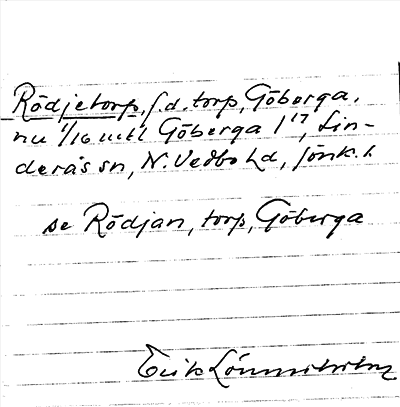 Rödjetorp, f.d. torp, Göberga,
nu 1/16 mtl Göberga 1¹⁷, Lin-
derås sn, N. Vedbo hd, Jönk. l.
se Rödjan, torp, Göberga
Erik Lönnerholm